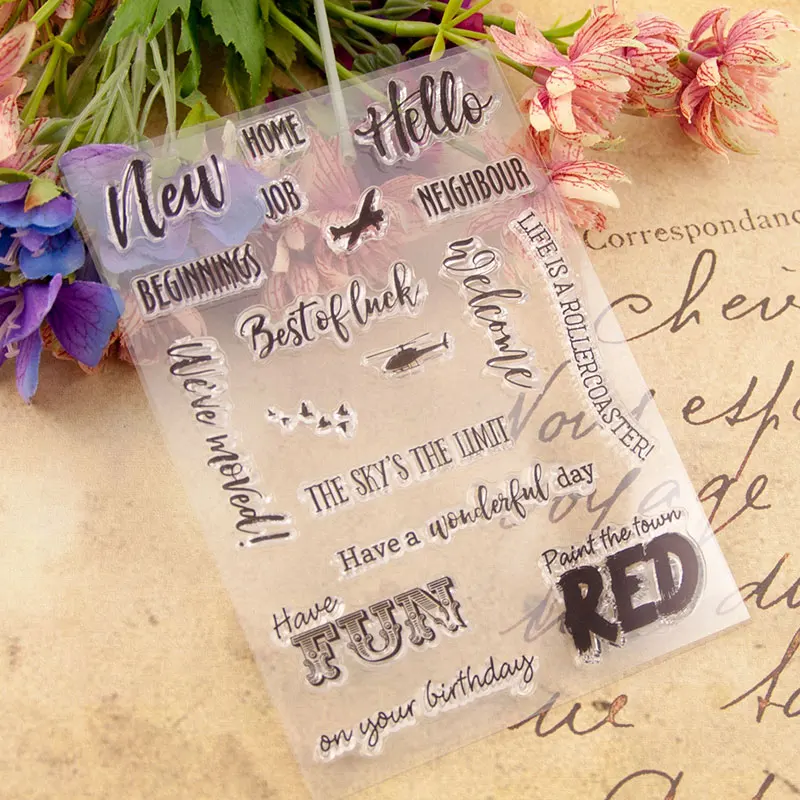 Hello
HOME
New
JOB
NEIGHBOUR
BEGINNINGS
Best of luck
Welcome
LIFE IS A ROLLERCOASTER!
We've moved!
THE SKY'S THE LIMIT
Have a wonderful day
Paint the town
RED
Have
FUN
on your birthday
Correspondanc